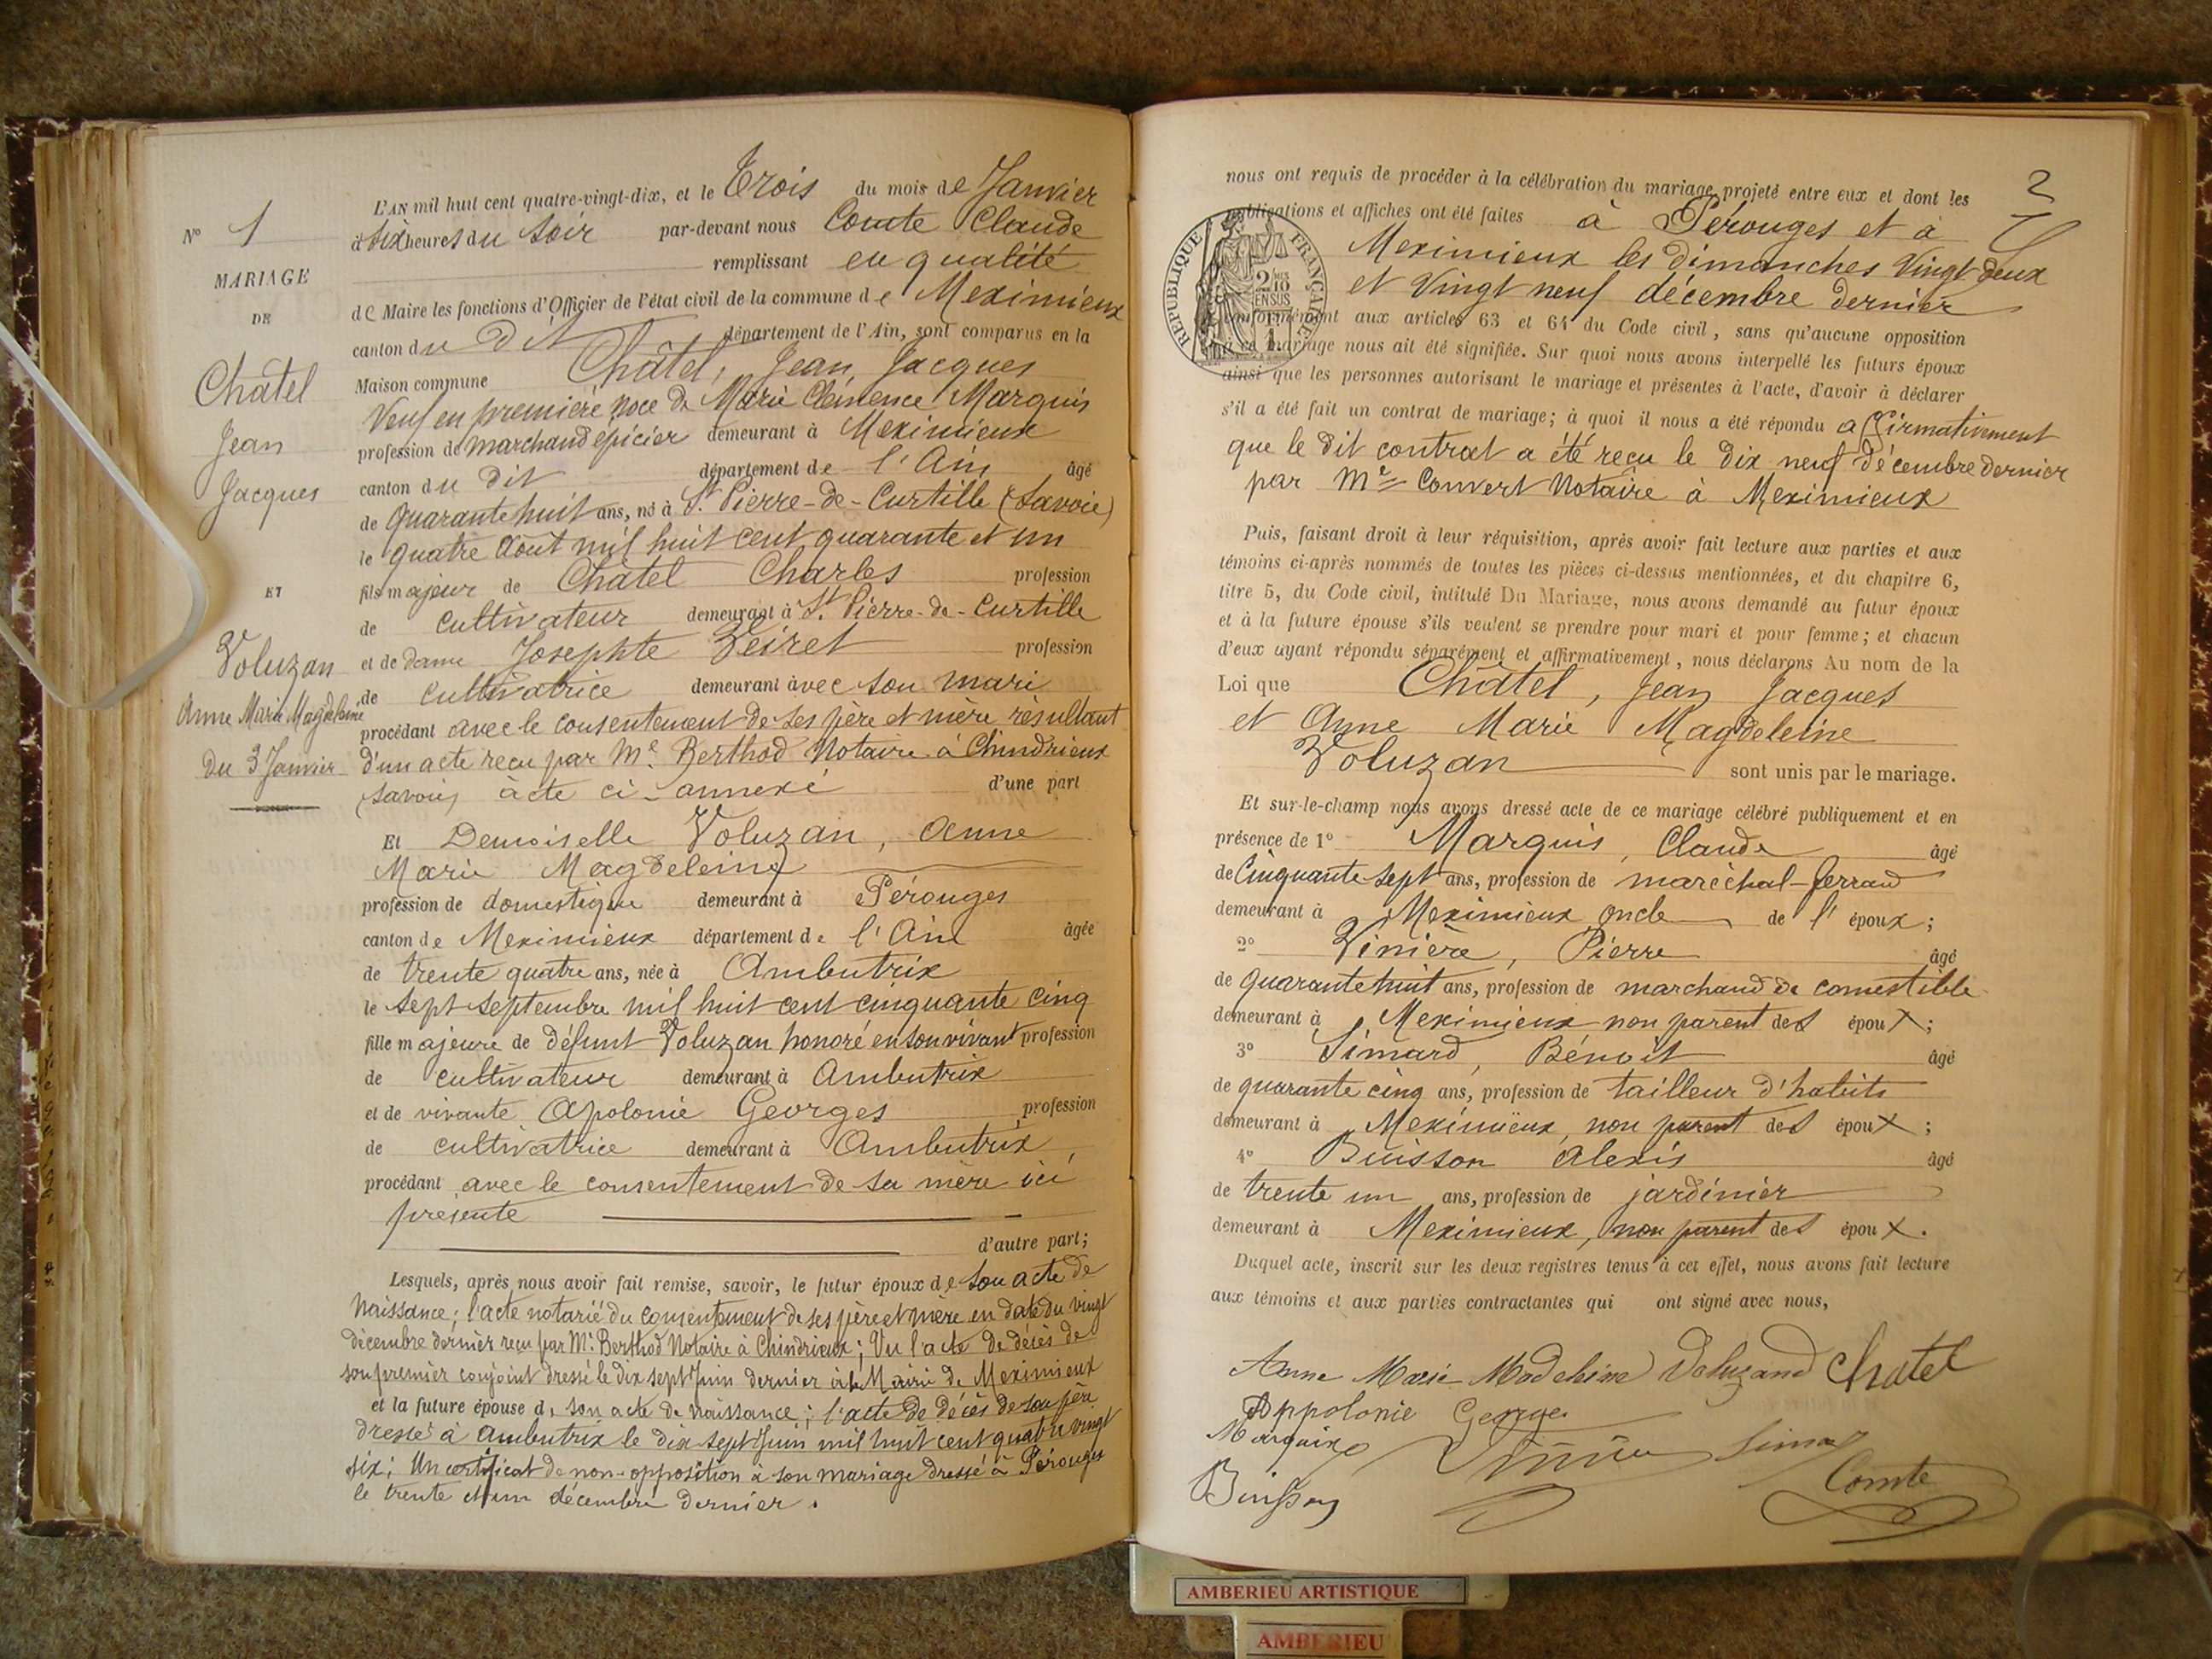 N° 1
MARIAGE
DE
Châtel
Jean
Jacques
ET
Voluzan
Anne Marie Magdeleine
Du 3 Janvier
L'AN mil huit cent quatre-vingt-dix, et le Trois du mois de Janvier
à six heures du Soir par-devant nous Comte Claude
remplissant en qualité
de Maire les fonctions d'Officier de l'état civil de la commune de Meximieux
canton du dit département de l'Ain, sont comparus en la
Maison commune Châtel, Jean Jacques
Veuf en première noce de Marie Clémence Marquis
profession de marchand épicier demeurant à Meximieux
canton du dit département de l'Ain âgé
de quarante huit ans, né à St Pierre-de-Curtille (Savoie)
le quatre Août mil huit cent quarante et un
fils majeur de Châtel Charles profession
de cultivateur demeurant à St. Pierre-de-Curtille
et de dame Josephte Veiret profession
de cultivatrice demeurant avec son mari
procédant avec le consentement de ses père et mère résultant
d'un acte reçu par Me. Berthod Notaire à Chindrieux
(Savoie) acte ci-annexé d'une part
Et Demoiselle Voluzan, Anne
Marie Magdeleine
profession de domestique demeurant à Pérouges
canton de Meximieux département de l'Ain âgée
de trente quatre ans, née à Ambutrix
le sept septembre mil huit cent cinquante cinq
fille majeure de défunt Voluzan honoré en son vivant profession
de cultivateur demeurant à Ambutrix
et de vivante Apolonie Georges profession
de cultivatrice demeurant à Ambutrix
procédant avec le consentement de sa mère ici
présente
d'autre part;
Lesquels, après nous avoir fait remise, savoir, le futur époux de son acte de
Naissance; l'acte notarié du consentement de ses père et mère en date du vingt
décembre dernier reçu par Me. Berthod Notaire à Chindrieux; Vu l'acte de décès de
son premier conjoint dressé le dix sept Juin dernier à la Mairie de Meximieux
et la future épouse de son acte de naissance; l'acte de décès de son père
dressé à Ambutrix le dix sept Juin mil huit cent quatre vingt
six; Un certificat de non-opposition à son mariage dressé à Pérouges
le trente et un décembre dernier.
2
nous ont requis de procéder à la célébration du mariage projeté entre eux et dont les
publications et affiches ont été faites à Pérouges et à
Meximieux les dimanches Vingt deux
et Vingt neuf décembre dernier
conformément aux articles 63 et 64 du Code civil, sans qu'aucune opposition
à ce mariage nous ait été signifiée. Sur quoi nous avons interpellé les futurs époux
ainsi que les personnes autorisant le mariage et présentes à l'acte, d'avoir à déclarer
s'il a été fait un contrat de mariage; à quoi il nous a été répondu affirmativement
que le dit contrat a été reçu le dix neuf décembre dernier
par Me Convert Notaire à Meximieux
RÉPUBLIQUE FRANÇAISE
Puis, faisant droit à leur réquisition, après avoir fait lecture aux parties et aux
témoins ci-après nommés de toutes les pièces ci-dessus mentionnées, et du chapitre 6,
titre 5, du Code civil, intitulé Du Mariage, nous avons demandé au futur époux
et à la future épouse s'ils veulent se prendre pour mari et pour femme; et chacun
d'eux ayant répondu séparément et affirmativement, nous déclarons Au nom de la
Loi que Châtel, Jean Jacques
et Anne Marie Magdeleine
Voluzan sont unis par le mariage.
Et sur-le-champ nous avons dressé acte de ce mariage célébré publiquement et en
présence de 1° Marquis, Claude âgé
de Cinquante sept ans, profession de maréchal-ferrand
demeurant à Meximieux oncle de l'époux;
2° Vinière, Pierre âgé
de quarante huit ans, profession de marchand de comestible
demeurant à Meximieux non parent des époux;
3° Simard, Bénoit âgé
de quarante cinq ans, profession de tailleur d'habits
demeurant à Meximieux, non parent des époux;
4° Buisson Alexis âgé
de trente un ans, profession de jardinier
demeurant à Meximieux, non parent des époux.
Duquel acte, inscrit sur les deux registres tenus à cet effet, nous avons fait lecture
aux témoins et aux parties contractantes qui ont signé avec nous,
Anne Marie Madeleine Voluzand Chatel
Appolonie George
Marquis Vinière Simard
Buisson Comte
AMBERIEU ARTISTIQUE
AMBERIEU